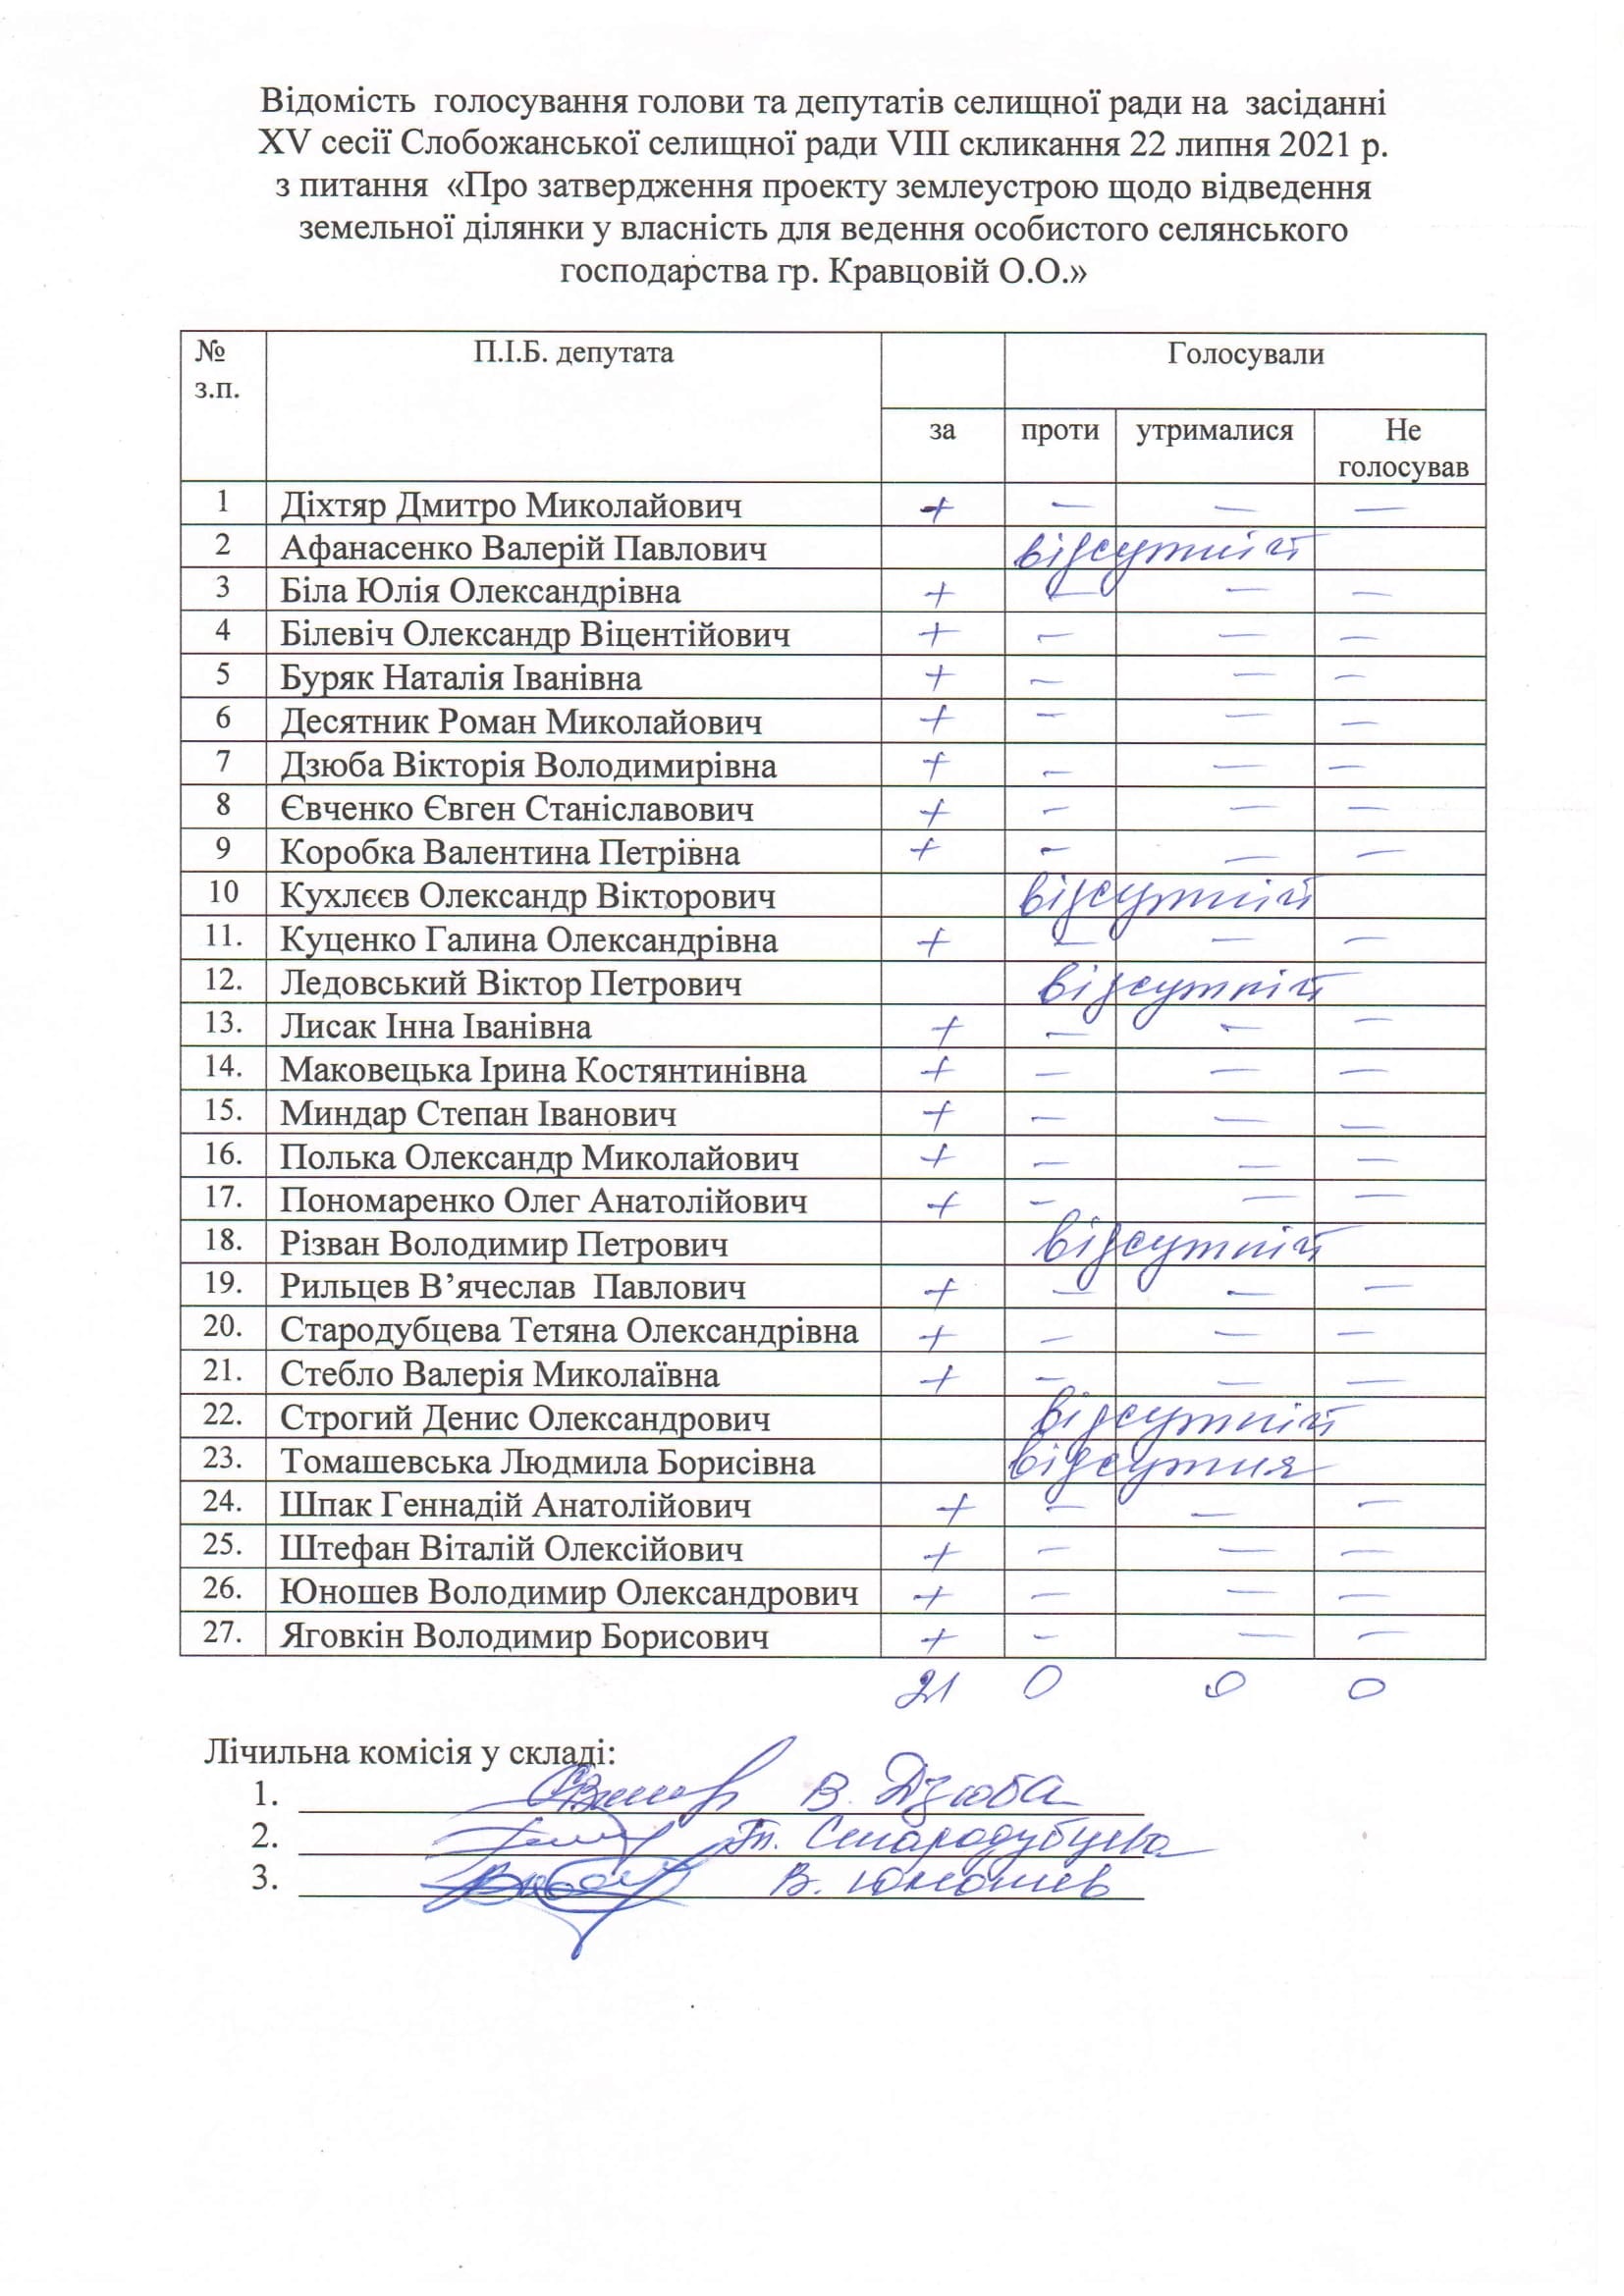 Відомість голосування голови та депутатів селищної ради на засіданні
XV сесії Слобожанської селищної ради VIII скликання 22 липня 2021 р.
з питання «Про затвердження проекту землеустрою щодо відведення
земельної ділянки у власність для ведення особистого селянського
господарства гр. Кравцовій О.О.»
№ з.п. П.І.Б. депутата Голосували
за проти утрималися Не голосував
1 Діхтяр Дмитро Миколайович + — — —
2 Афанасенко Валерій Павлович відсутній
3 Біла Юлія Олександрівна + — — —
4 Білевіч Олександр Віцентійович + — — —
5 Буряк Наталія Іванівна + — — —
6 Десятник Роман Миколайович + — — —
7 Дзюба Вікторія Володимирівна + — — —
8 Євченко Євген Станіславович + — — —
9 Коробка Валентина Петрівна + — — —
10 Кухлєєв Олександр Вікторович відсутній
11. Куценко Галина Олександрівна + — — —
12. Ледовський Віктор Петрович відсутній
13. Лисак Інна Іванівна + — — —
14. Маковецька Ірина Костянтинівна + — — —
15. Миндар Степан Іванович + — — —
16. Полька Олександр Миколайович + — — —
17. Пономаренко Олег Анатолійович + — — —
18. Різван Володимир Петрович відсутній
19. Рильцев В’ячеслав Павлович + — — —
20. Стародубцева Тетяна Олександрівна + — — —
21. Стебло Валерія Миколаївна + — — —
22. Строгий Денис Олександрович відсутній
23. Томашевська Людмила Борисівна відсутня
24. Шпак Геннадій Анатолійович + — — —
25. Штефан Віталій Олексійович + — — —
26. Юношев Володимир Олександрович + — — —
27. Яговкін Володимир Борисович + — — —
21 0 0 0
Лічильна комісія у складі:
1. В. Дзюба
2. Т. Стародубцева
3. В. Юношев